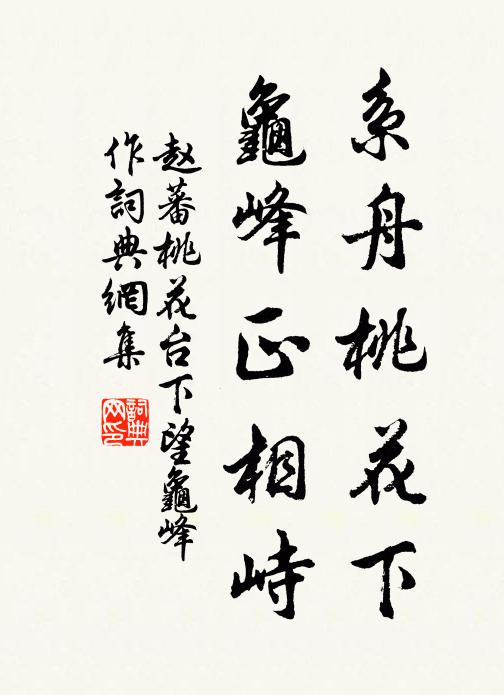 系舟桃花下
龜峰正相峙
赵蕃桃花台下望龜峰
作詞典網集
詞典网印